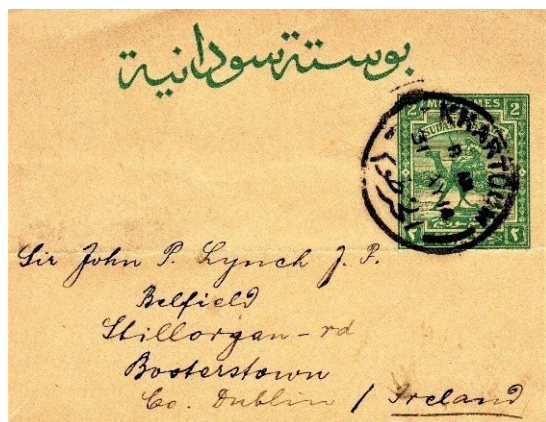 بوستة سودانية
2 MILLIEMES 2
SUDAN
KHARTOUM
الخرطوم
٢ ٢
Sir John P. Lynch J. P.
Belfield
Stillorgan - rd
Booterstown
Co. Dublin / Ireland